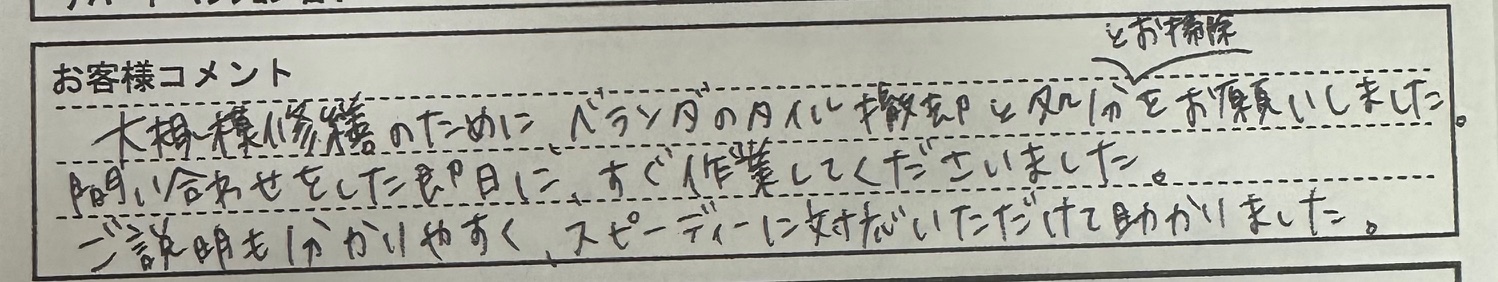 お客様コメント
とお掃除
大規模修繕のために、ベランダのタイル撤却と処分をお願いしました。
問い合わせをした即日に、すぐ作業してくださいました。
ご説明も分かりやすく、スピーディーに対応いただけて助かりました。